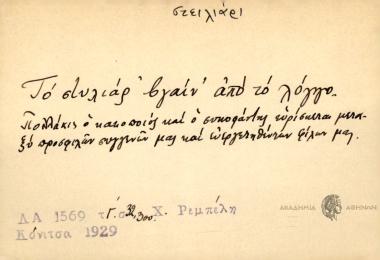 στειλιάρι
Τό στυλιάρ' βγαίν' ἀπό τό λόγγο.
Πολλάκις ὁ κακοποιός καί ὁ συκοφάντης εὑρίσκεται μετα-
ξύ προσφιλῶν συγγενῶν μας καί εὐεργετηθέντων φίλων μας.
ΛΑ 1569 Γ. 32, 300 Χ. Ρεμπέλη
Κόνιτσα 1929
ΑΚΑΔΗΜΙΑ ΑΘΗΝΩΝ